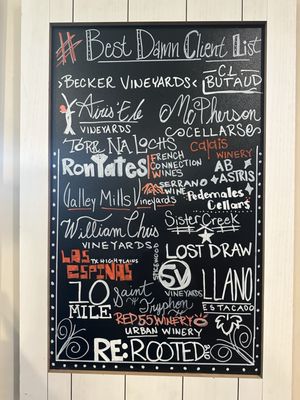 #Best Damn Client List
BECKER VINEYARDS
CL BUTAUD
Airis' Ele
VINEYARDS
McPherson
CELLARS
TORR NA LOCHS
Calais
WINERY
Ron Yates
FRENCH
CONNECTION
WINES
AB
ASTRIS
SERRANO
WINE
Valley Mills Vineyards
Pedernales
Cellars
William Chris
VINEYARDS
Sister Creek
LOST DRAW
LAS
ESPINAS
TX HIGH PLAINS
5V
VINEYARDS
LLANO
ESTACADO
10
MILE
Saint
Tryphon
RED 55 WINERY
URBAN WINERY
RE:ROOTED